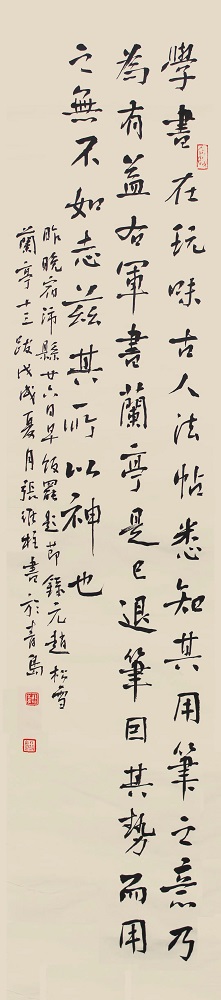 學書在玩味古人法帖悉知其用筆之意乃
為有益右軍書蘭亭是已退筆因其勢而用
之無不如志茲其所以神也
昨晚宿沛縣廿六日早飯罷題節錄元趙松雪
蘭亭十三跋戊戌夏月張維書於青島